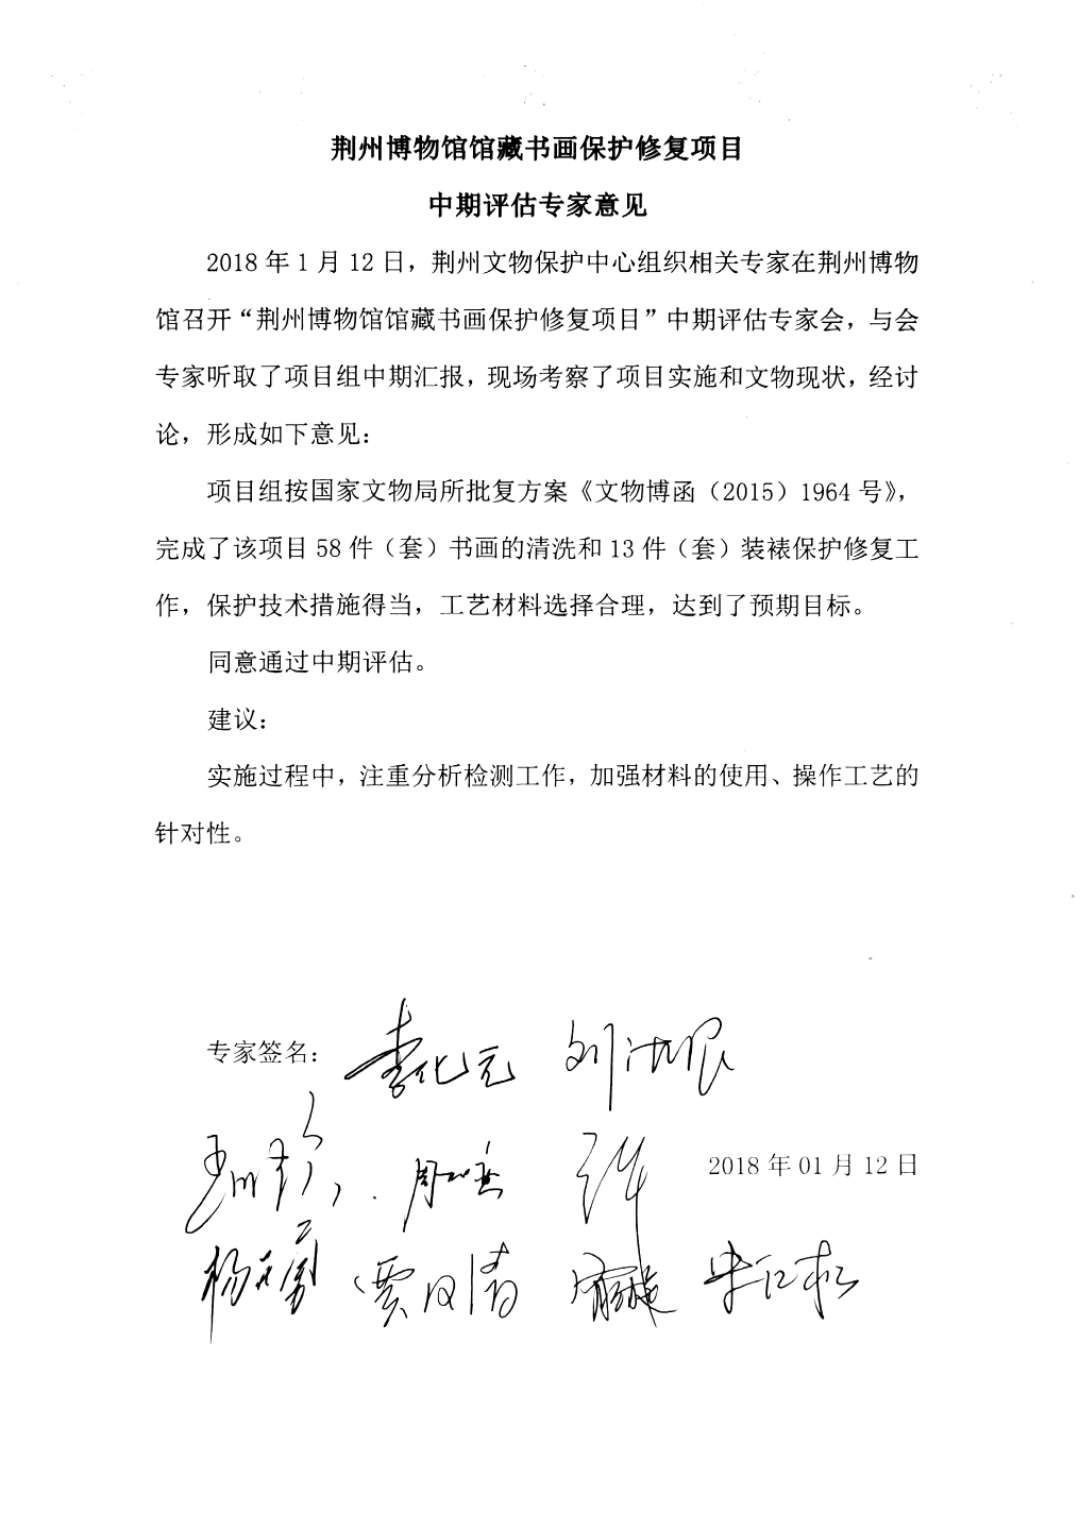 荆州博物馆馆藏书画保护修复项目
中期评估专家意见
2018 年 1 月 12 日，荆州文物保护中心组织相关专家在荆州博物
馆召开“荆州博物馆馆藏书画保护修复项目”中期评估专家会，与会
专家听取了项目组中期汇报，现场考察了项目实施和文物现状，经讨
论，形成如下意见：
项目组按国家文物局所批复方案《文物博函（2015）1964 号》，
完成了该项目 58 件（套）书画的清洗和 13 件（套）装裱保护修复工
作，保护技术措施得当，工艺材料选择合理，达到了预期目标。
同意通过中期评估。
建议：
实施过程中，注重分析检测工作，加强材料的使用、操作工艺的
针对性。
专家签名： 李化元
2018 年 01 月 12 日